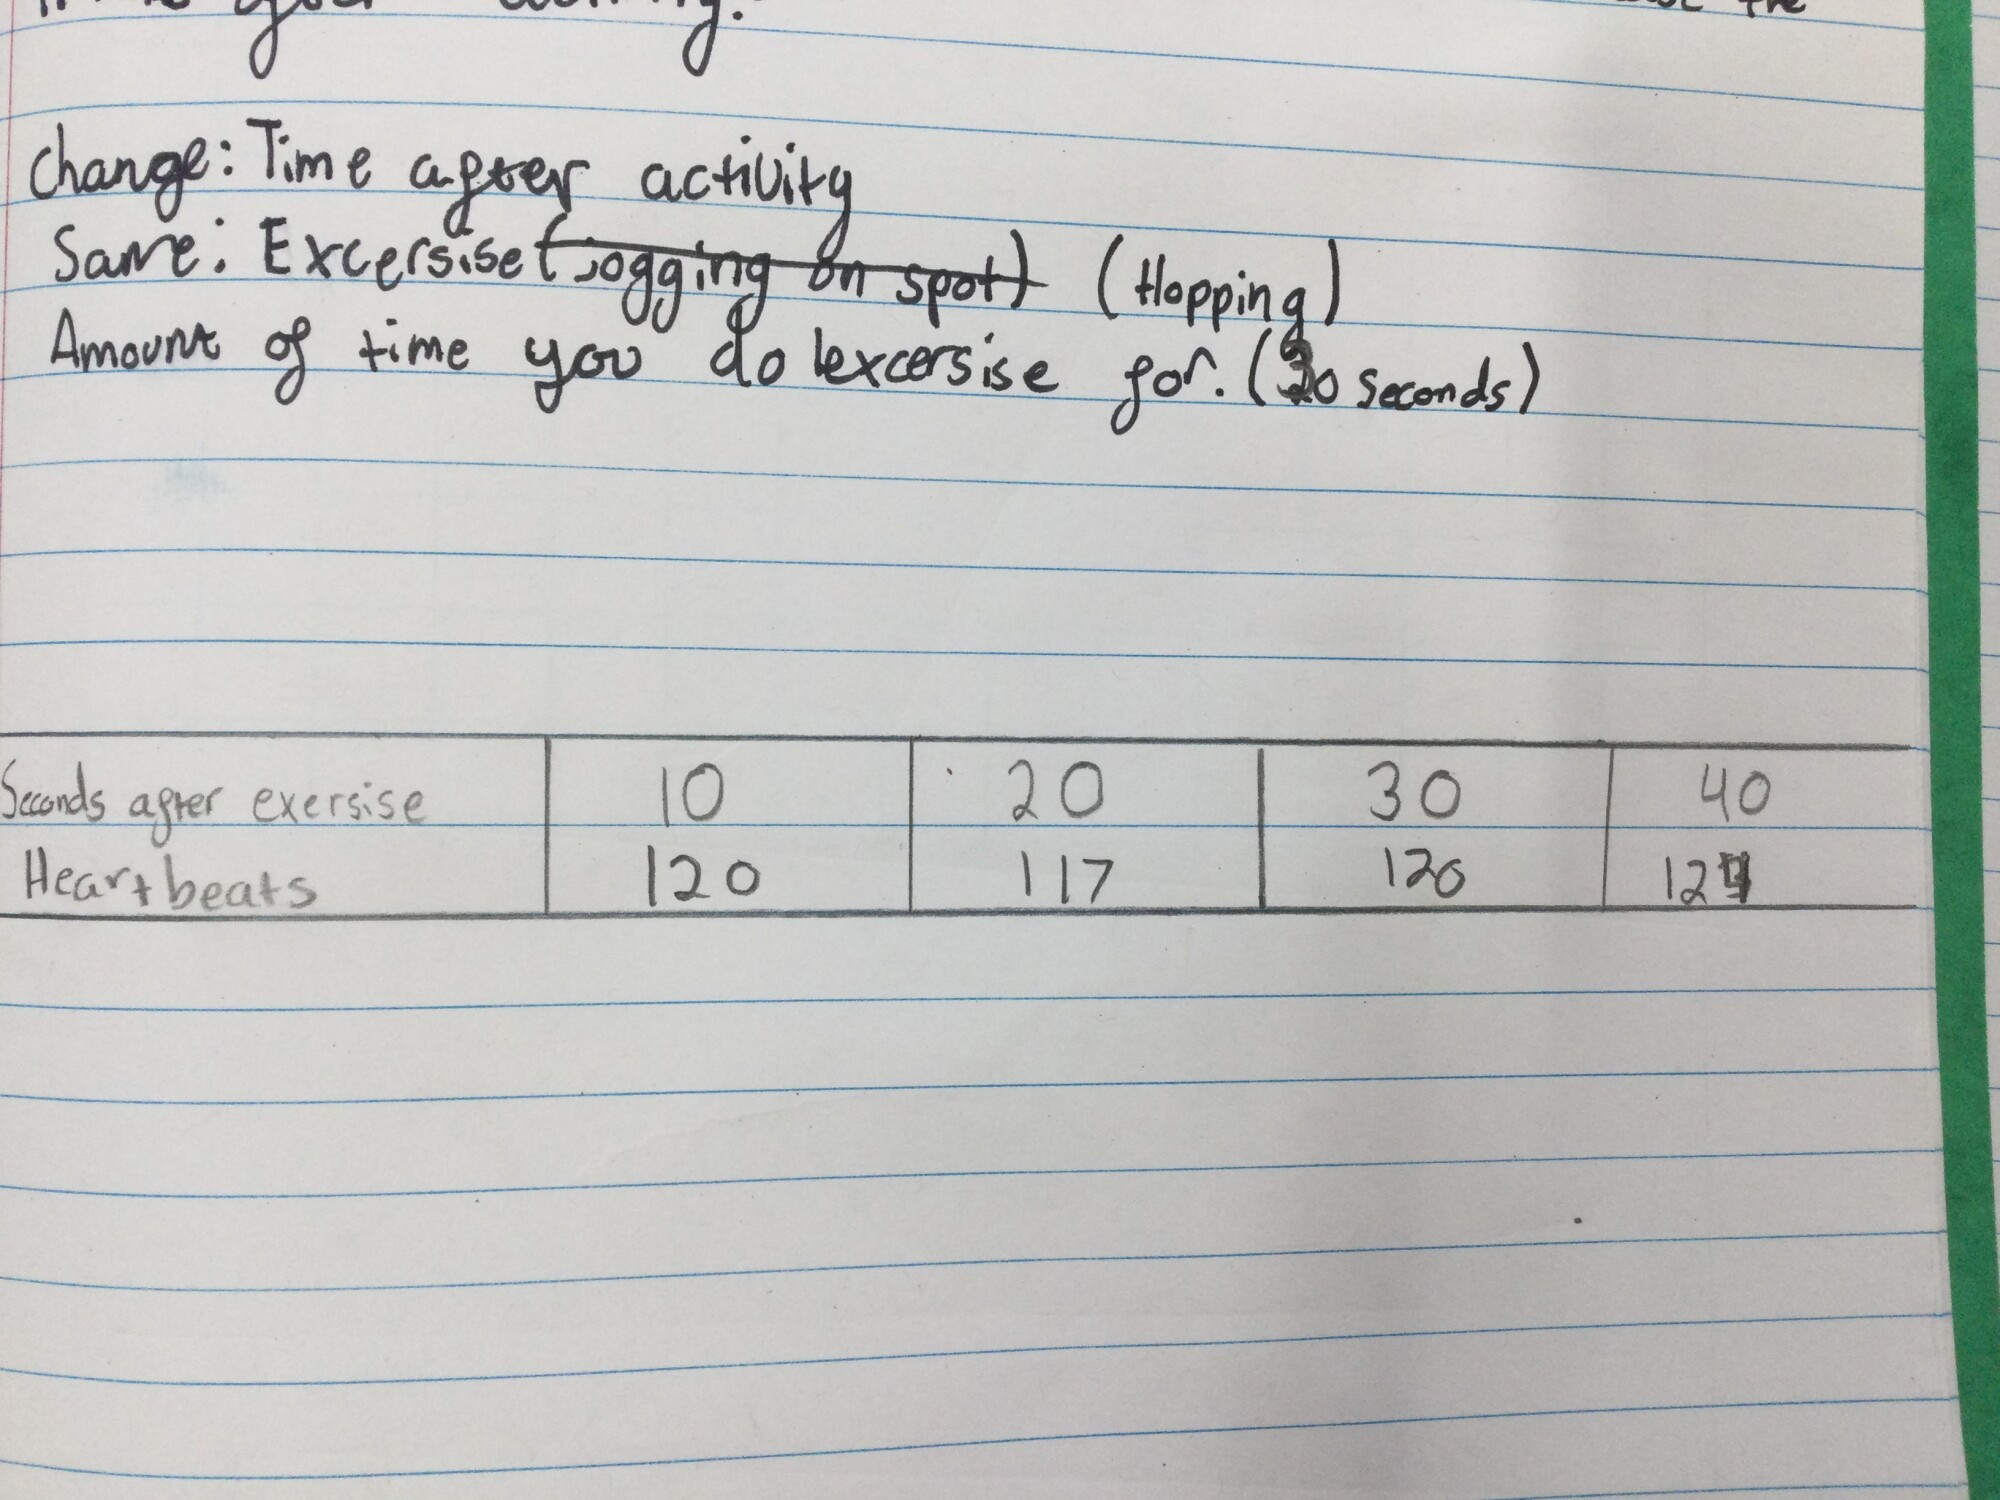 time after activity.
the
Change: Time after activity
Same: Excersise (jogging on spot) (Hopping)
Amount of time you do excersise for. (30 seconds)
Seconds after exersise 10 20 30 40
Heartbeats 120 117 120 124